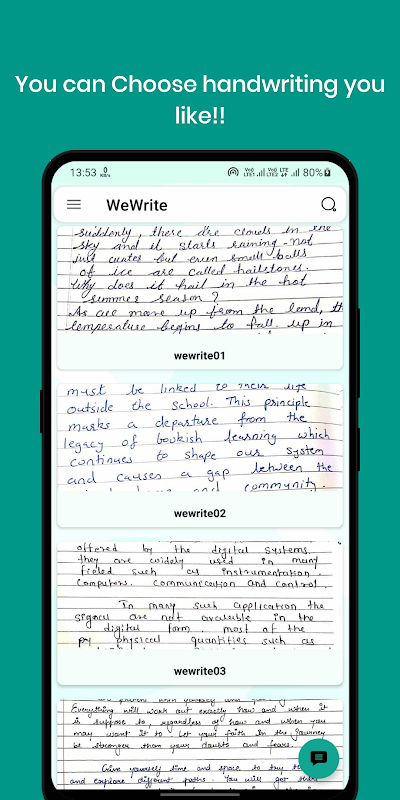 You can Choose handwriting you
like!!
13:53 0 KB/s VoD LTE1 VoD LTE2 LTE 80%
WeWrite
suddenly, there are clouds in the
sky and it starts raining not
just water but even small balls
of ice are called hailstones.
Why does it hail in the hot
summer season?
As we move up from the land, the
temperature begins to fall. up in
wewrite01
must be linked to their life
outside the school. This principle
marks a departure from the
legacy of bookish learning which
continues to shape our system
and causes a gap between the
community.
wewrite02
offered by the digital systems.
they are widely used in many
field such as instrumentation.
Computers. Communication and control.
In many such application the
signal are not available in the
digital form. most of the
physical quantities such as
wewrite03
Everything will work out exactly how and when it
is suppose to, regardless of how and when you
may want it to. Let your faith in the journey
be stronger than your doubts and fears.
Give yourself time and space to try
and explore different paths. You will get